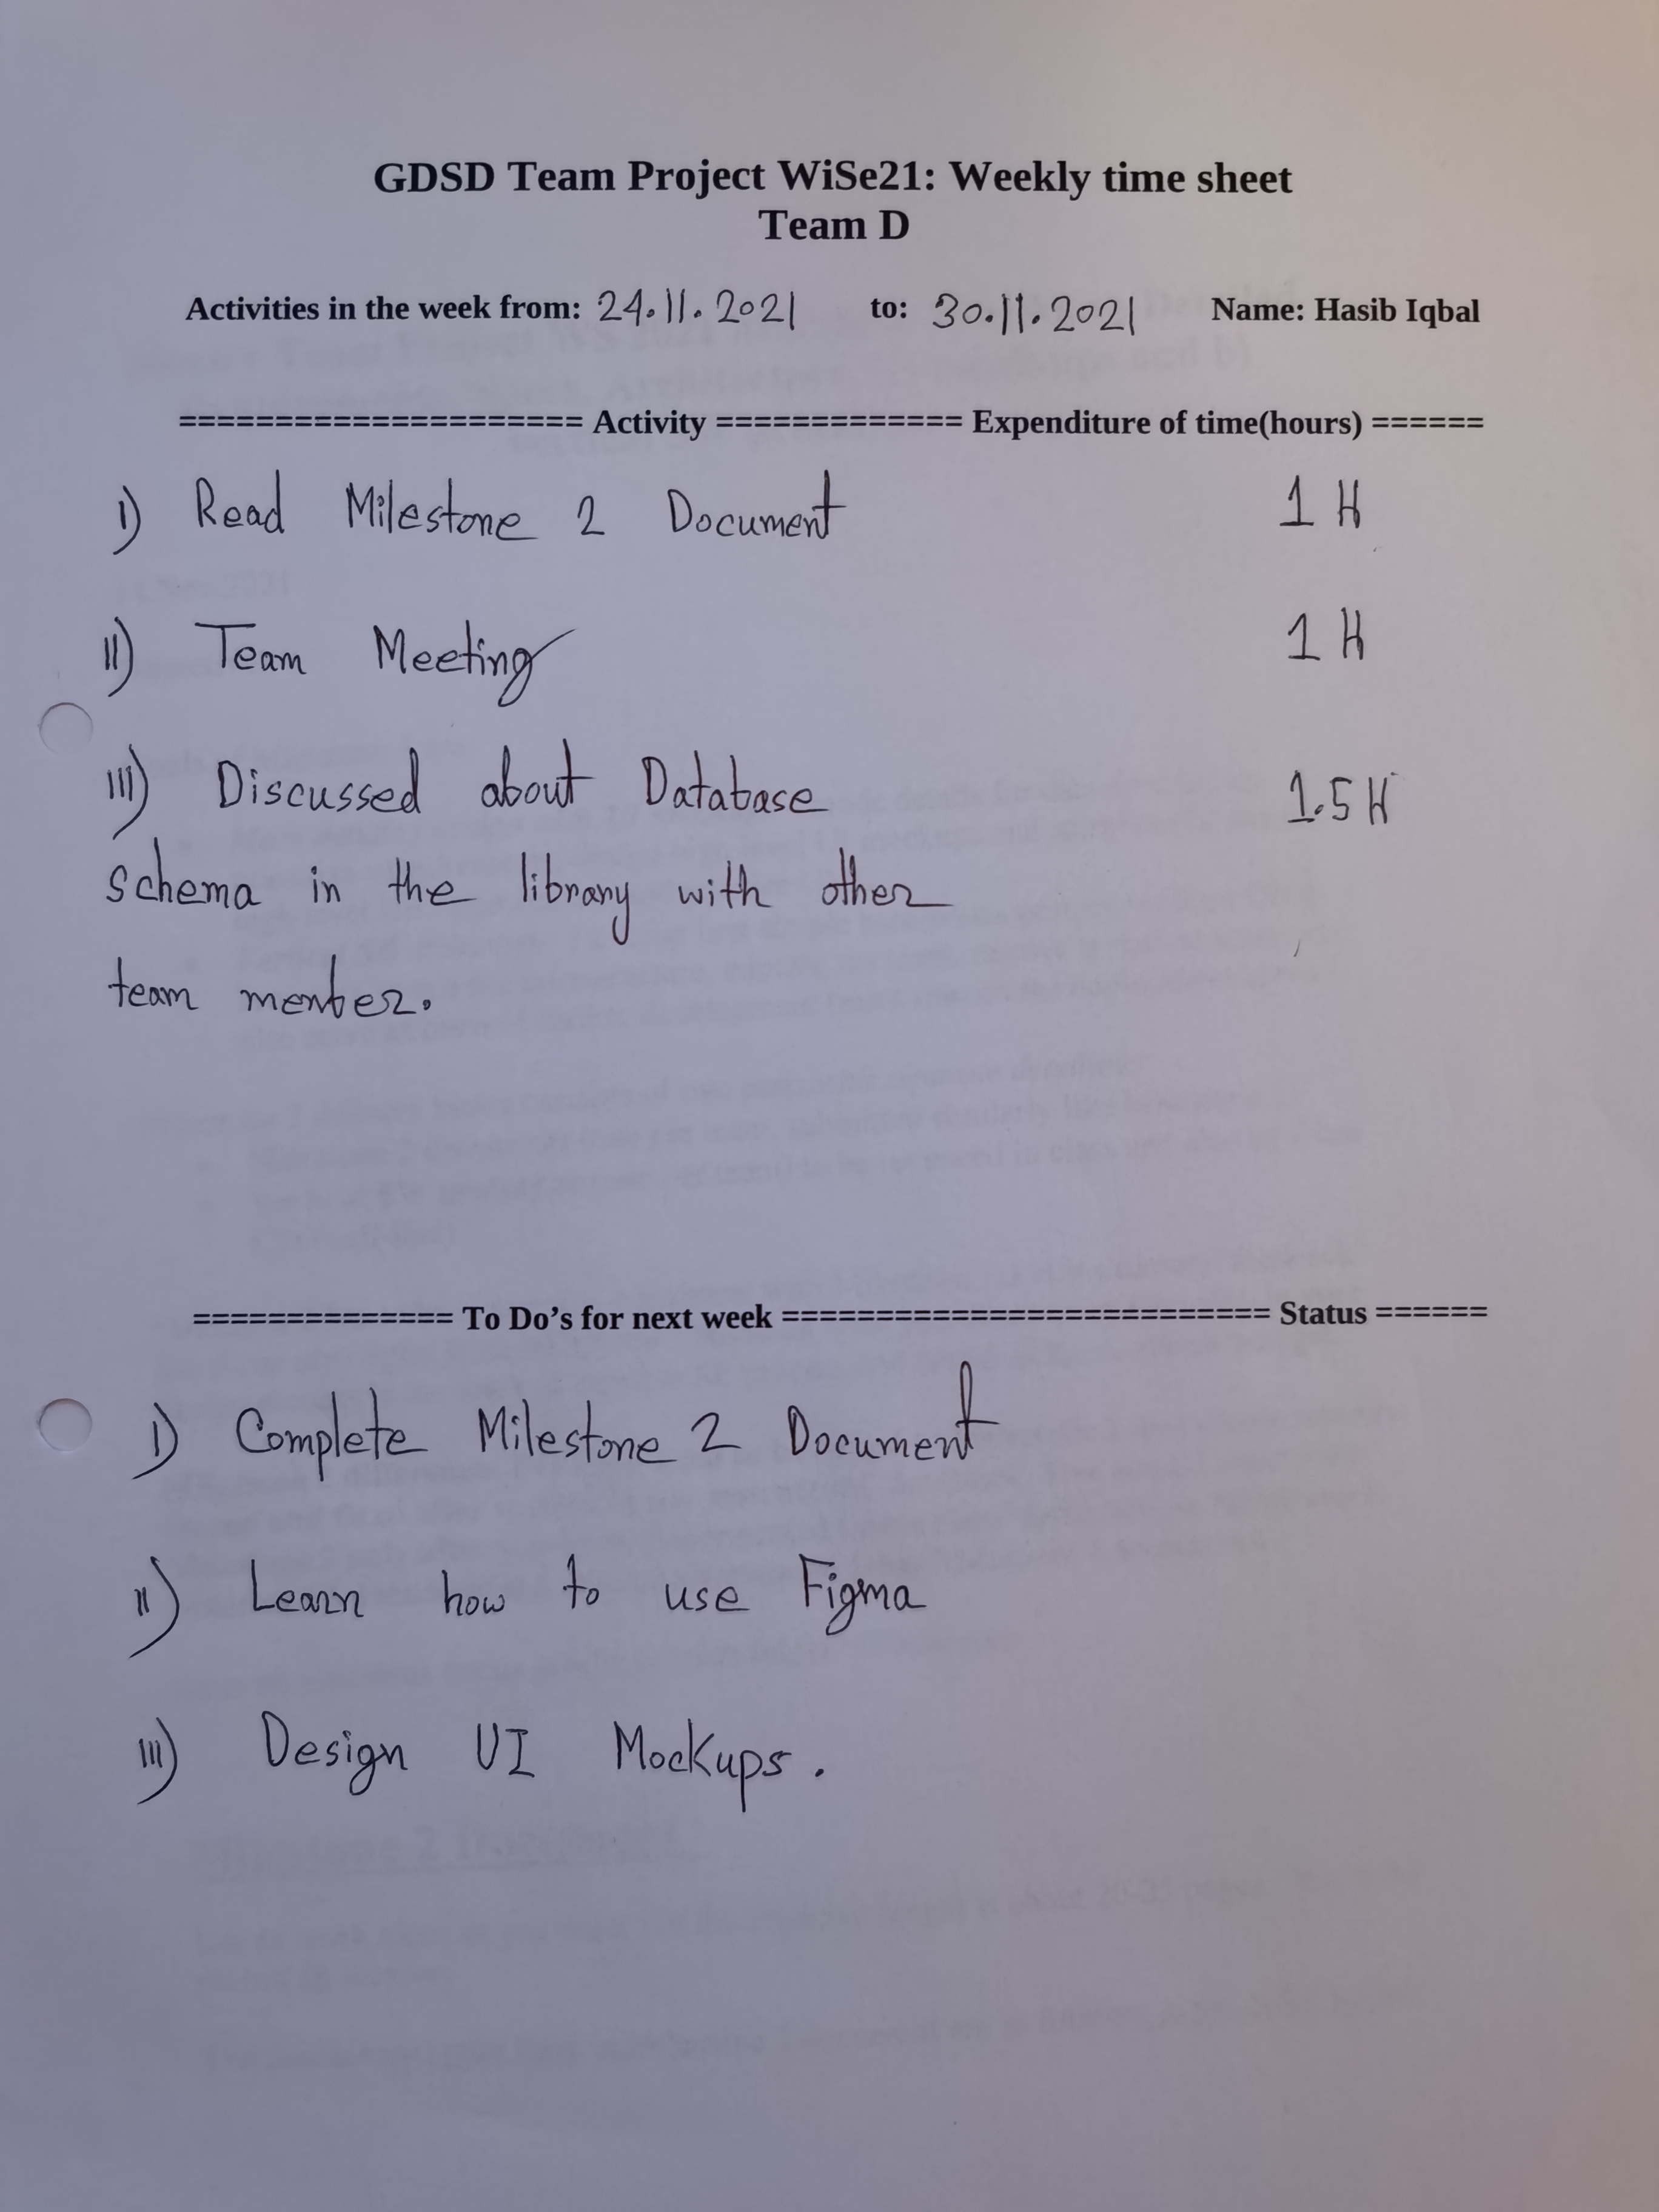 GDSD Team Project WiSe21: Weekly time sheet
Team D
Activities in the week from: 24.11.2021 to: 30.11.2021 Name: Hasib Iqbal
===================== Activity ============= Expenditure of time(hours) ======
I) Read Milestone 2 Document 1 H
II) Team Meeting 1 H
III) Discussed about Database 1.5 H
schema in the library with other
team member.
============== To Do's for next week ========================== Status ======
I) Complete Milestone 2 Document
II) Learn how to use Figma
III) Design UI Mockups.